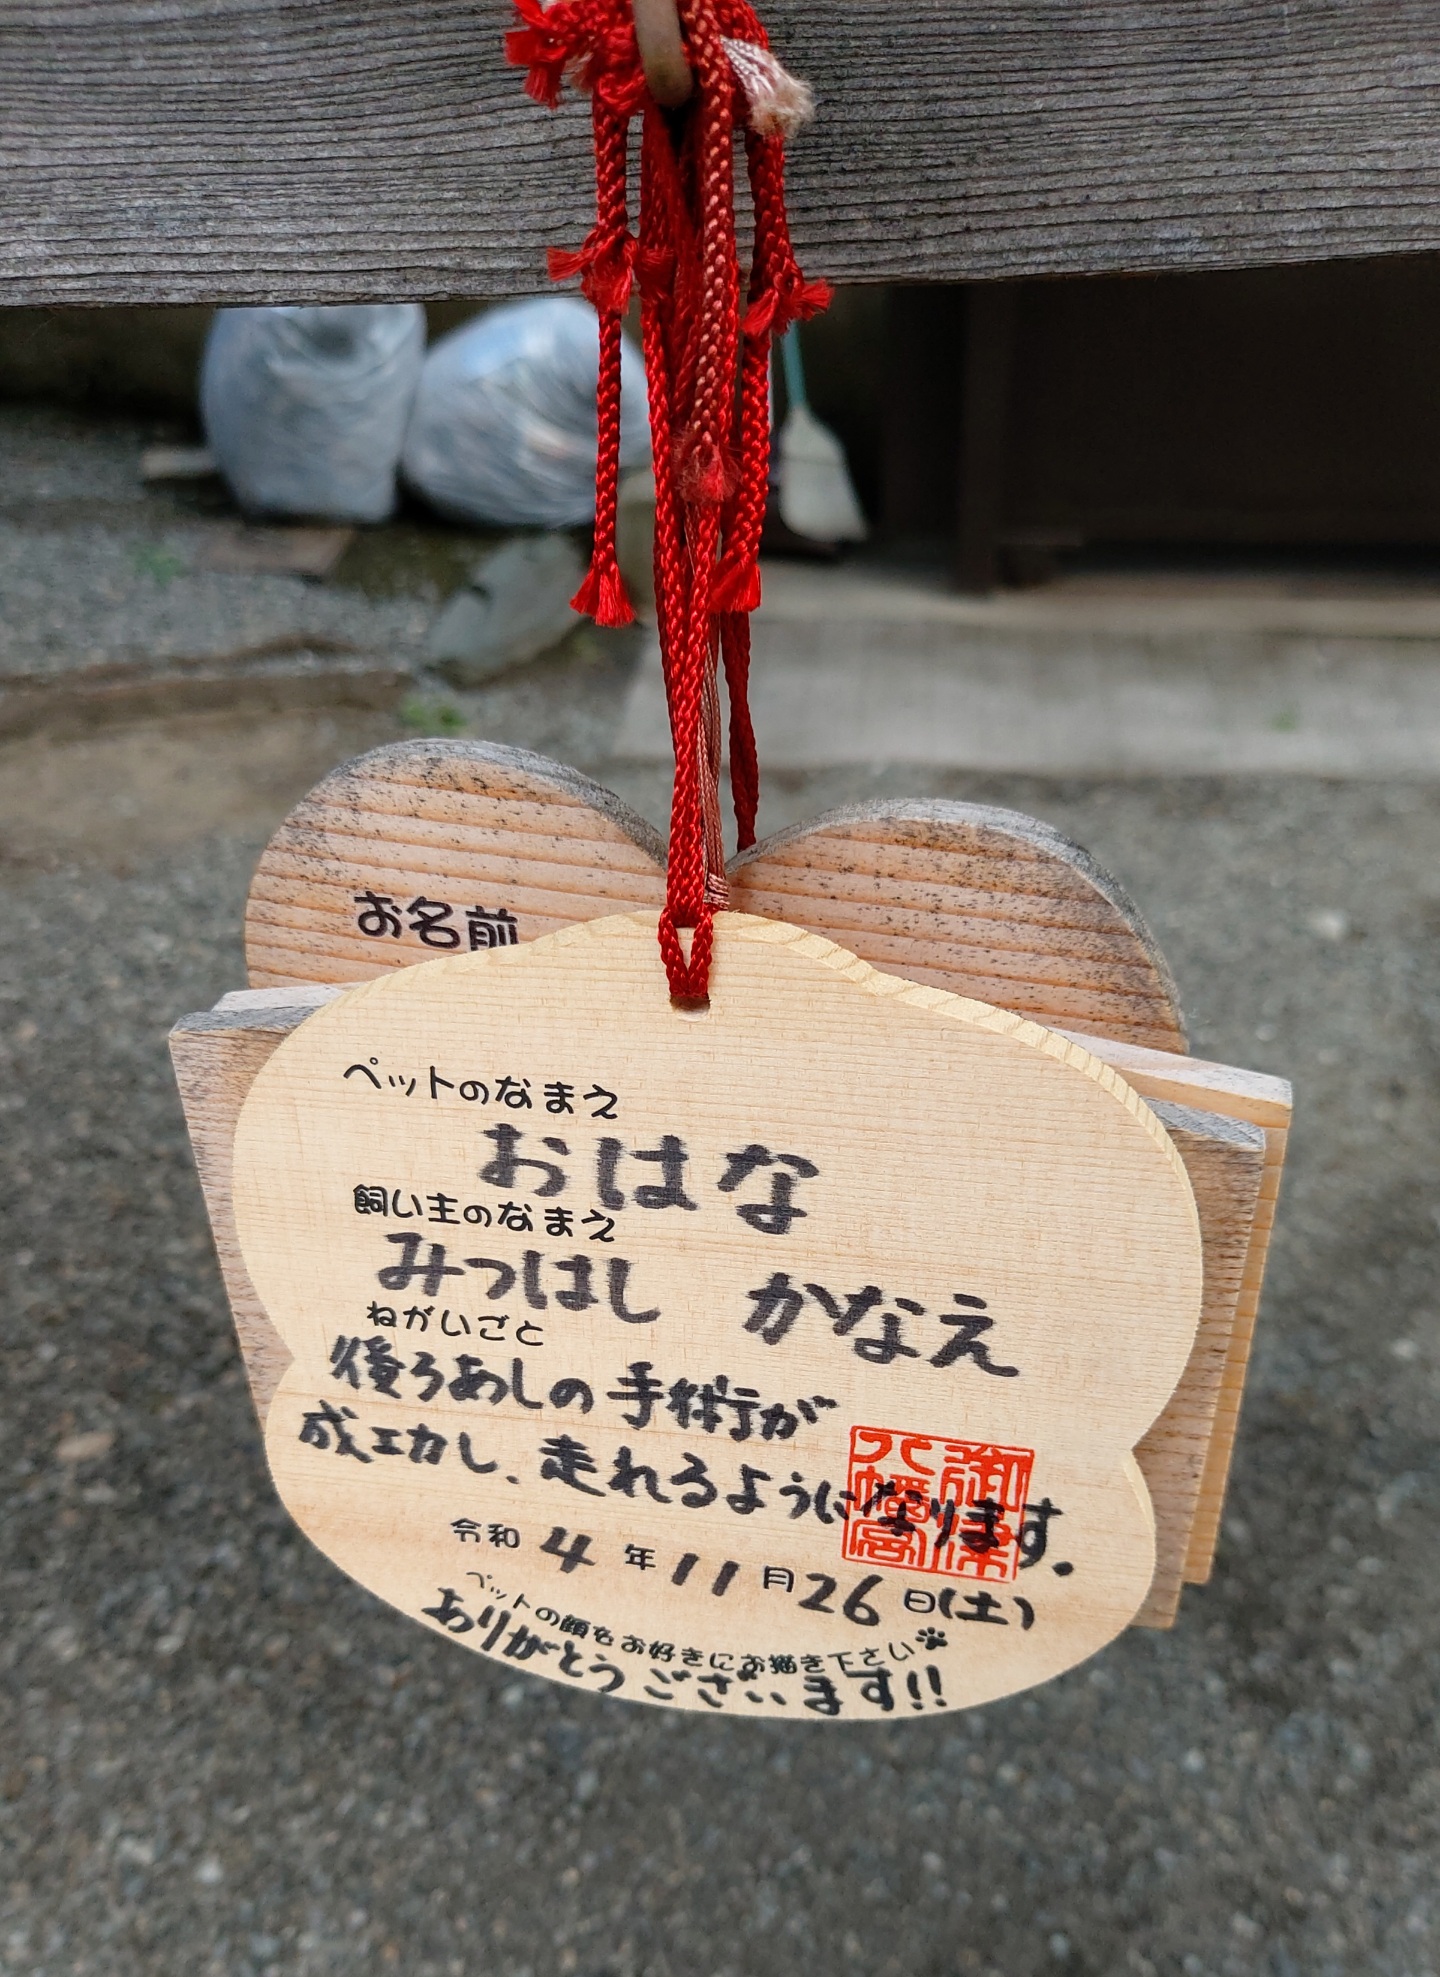 お名前
ペットのなまえ
おはな
飼い主のなまえ
みつはし かなえ
ねがいごと
後ろあしの手術が
成功し、走れるようになります。
令和 4 年 11 月 26 日(土)
ペットの顔をお好きにお描き下さい
ありがとうございます!!
八幡宮